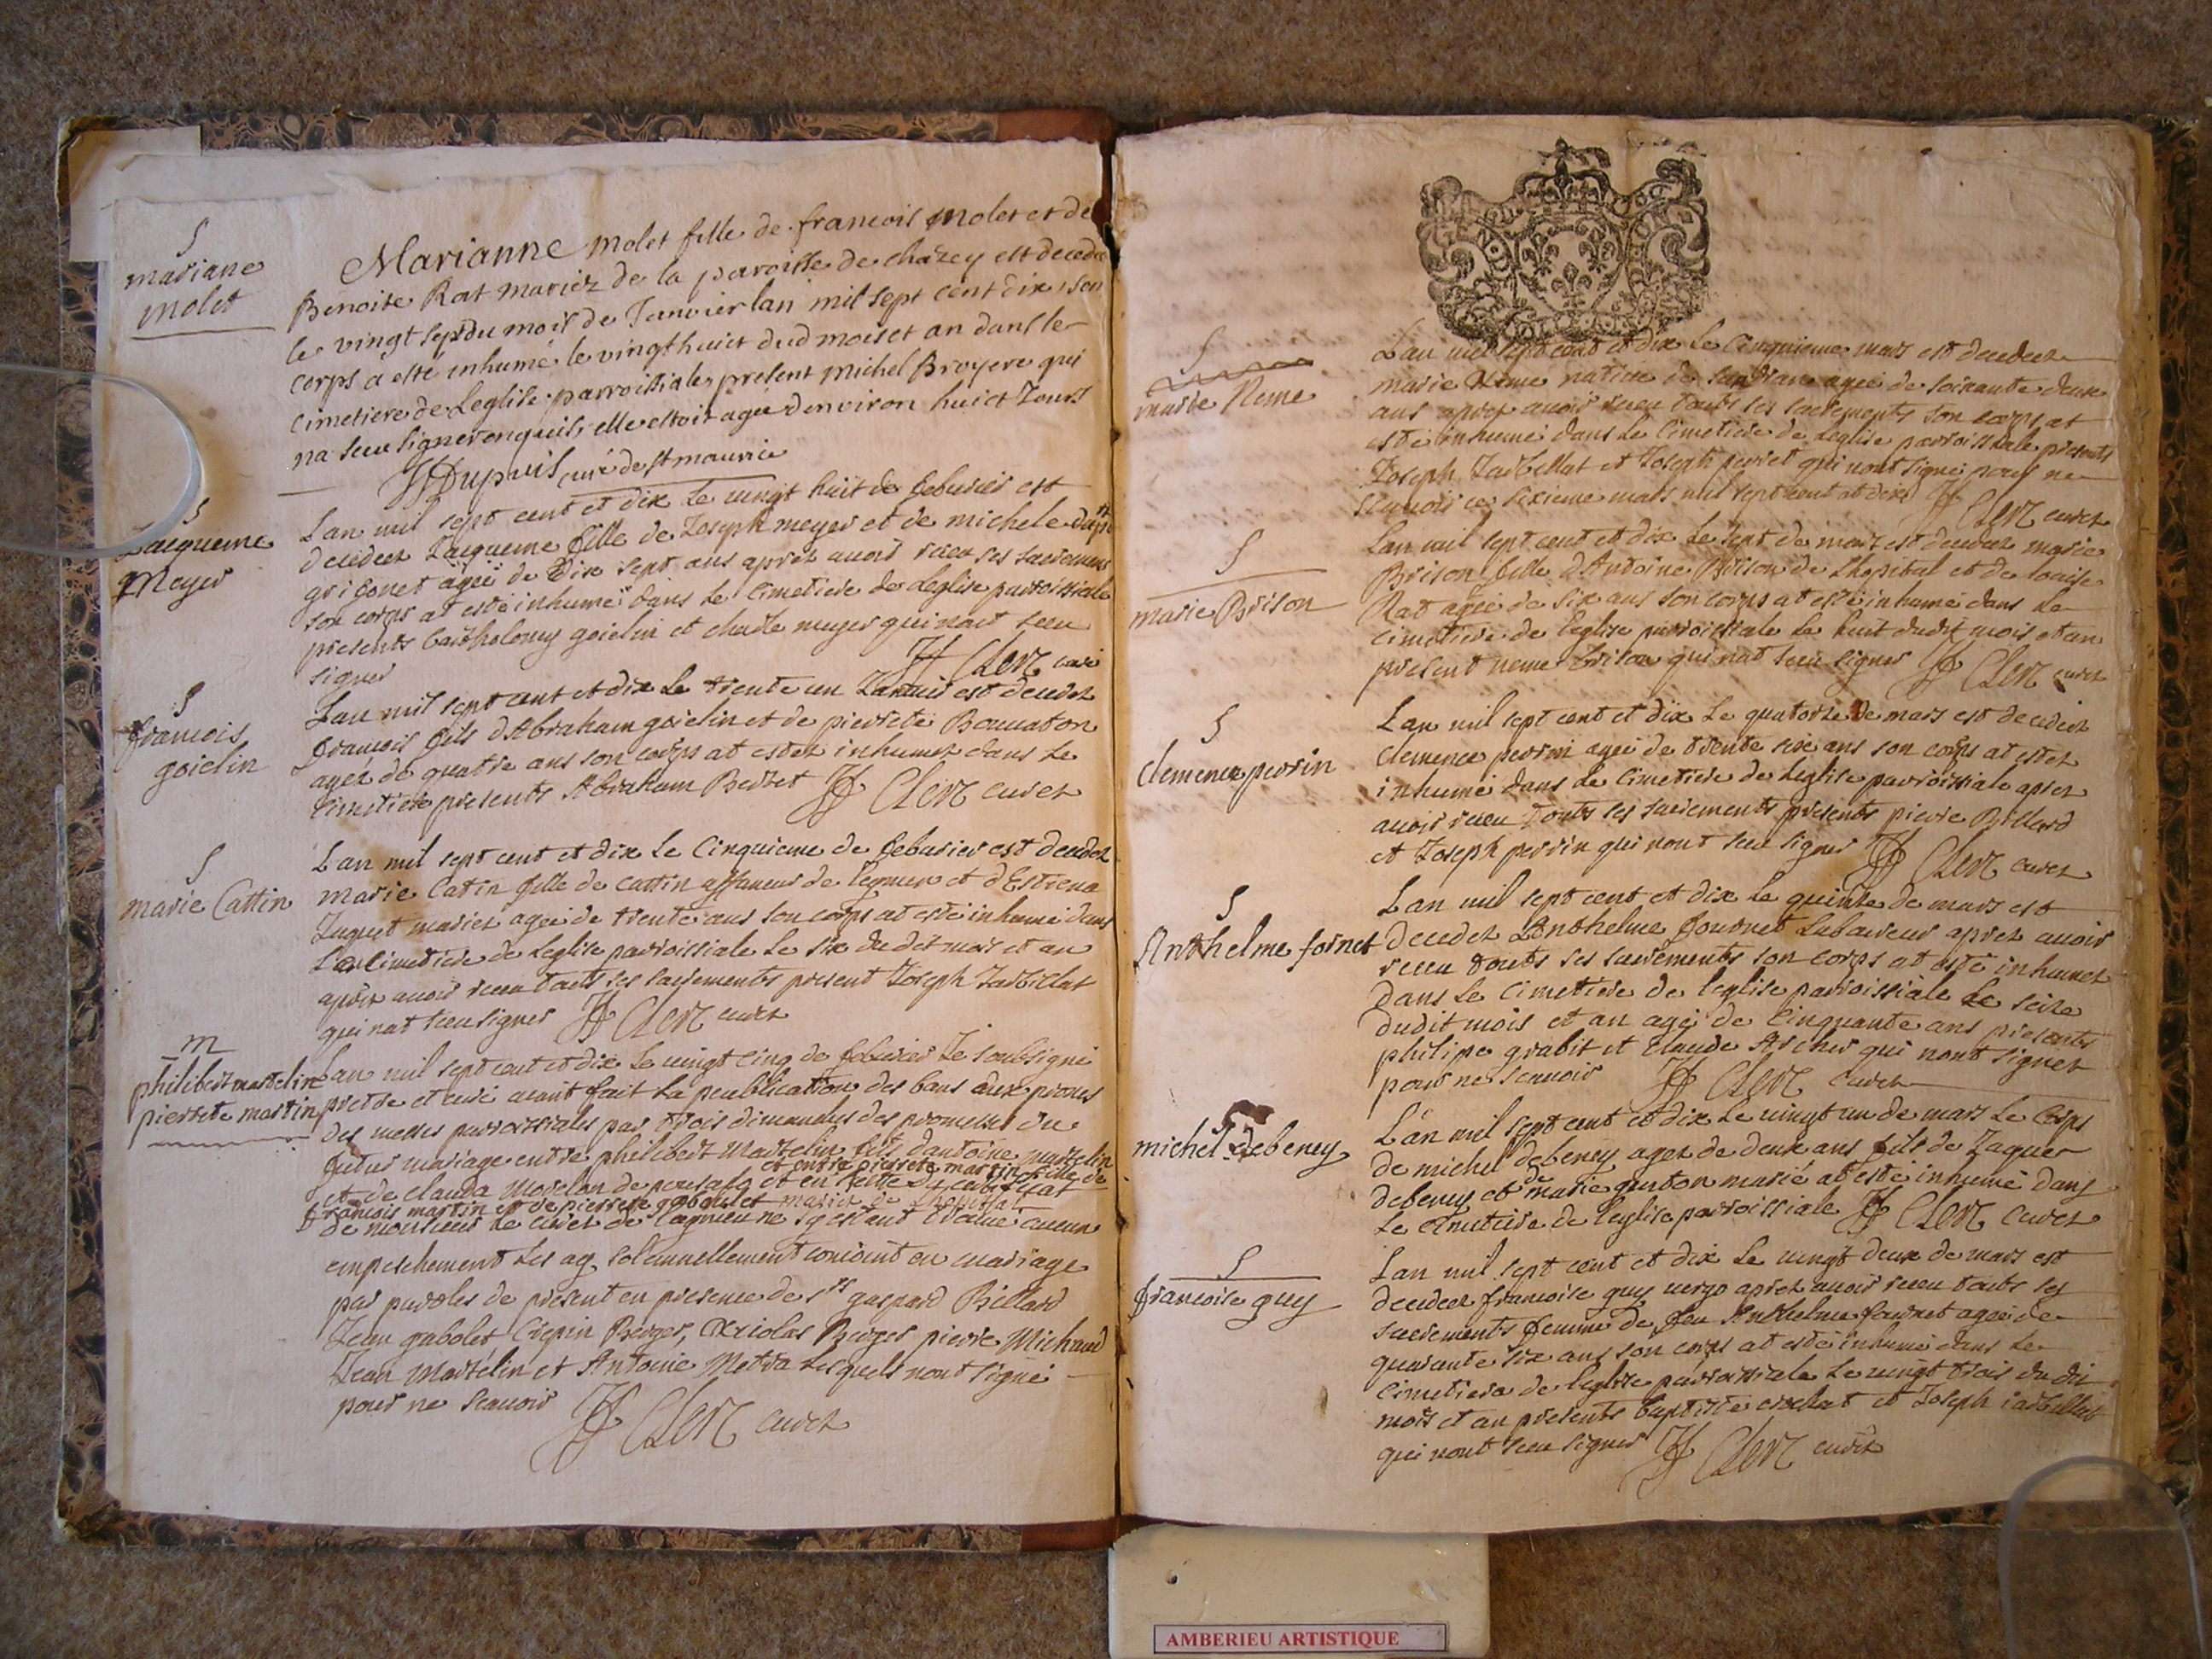 S
mariane
molet
Marianne molet fille de francois molet et de
Benoite Rat mariéz de la paroisse de chazey est decedee
le vingt sept du mois de Janvier lan mil sept cent dix, son
corps a esté inhumé le vingt huict dud mois et an dans le
cimetiere de Leglise parroissiale, present michel Broyere qui
na sceu signer enquis, elle estoit agee denviron huict Jours
Dupuis curé de st maurice
S
Jacqueme
Meyer
Lan mil sept cent et dix Le vingt huit de febvrier est
decedeez Jacqueme fille de Joseph meyer et de michele
griconet agee de Dix sept ans aprez avoir receu ses sacremens
son corps at esté inhumeé dans Le cimetiere de Leglise parroissiale
presents barthelemy goielin et charle meyer qui nont sceu
signer Clerc curé
S
francois
goielin
Lan mil sept cent et dix Le trente un Janvier est decedez
francois fils dAbraham goielin et de pierrete Bouvaton
agéz de quatre ans son corps at estez inhumez dans Le
Cimetiere presents Abraham Berzet Clerc curez
S
marie Cattin
Lan mil sept cent et dix Le Cinquieme de febvrier est decedez
marie Catin fille de Cattin affaneur de legnieu et dEstiena
Juquet mariez agée de trente ans son corps at esté inhumé dans
Le Cimetiere de Leglise parroissiale Le six du dit mois et an
aprez avoir receu touts ses sacrements present Joseph Jarbillat
qui nat sceu signer Clerc curez
m
philibert martelin
pierrete martin
Lan mil sept cent et dix Le vingt cinq de febvrier Je soubsigné
pretre et curé avoir fait La peublication des bans aux prones
des messes parroissiales par trois dimanches des promesses du
futur mariage entre philibert Martelin fils dantoine martelin
et entre pierrete martin fille de
et de Clauda Morelon de et en certificat
francois martin et de pierrete gaboulet mariez de Lhopital
de monsieur Le curez de Lagnieu ne sy estant trouvé aucun
empeschement Les ay solemnellement conioint en mariage
par paroles de present en presence de srs gaspard Billard
Jean gabolet Crepin Berger, Nicolas Berger pierre Michaud
Jean Martelin et Antoine Metra Lesquels nont signé
pour ne scavoir Clerc curez
S
marie Neme
Lan mil sept cent et dix Le Cinquieme mars est decedeez
marie Neme native de agee de soixante deux
ans aprez avoir receu touts ses sacrements son corps at
esté inhumé dans Le Cimetiere de Leglise parroissiale presents
Joseph Jarbillat et Joseph perret qui nont signé pour ne
scavoir ce sixieme mars mil sept cent et dix Clerc curez
S
marie Brison
Lan mil sept cent et dix Le sept de mars est decedez marie
Brison fille dAntoine Brison de Lhopital et de louise
Rat agée de six ans son corps at esté inhumé dans Le
Cimetiere de leglise parroissiale Le huit dudit mois et an
present neme brison qui nat sceu signer Clerc curez
S
clemence perrin
Lan mil sept cent et dix Le quatorze de mars est decedéz
clemence perrin agée de trente six ans son corps at estez
inhumé dans Le Cimetiere de Leglise parroissiale aprez
avoir receu touts ses sacrements presents pierre Billard
et Joseph perrin qui nont sceu signer Clerc curez
S
Anthelme fornet
Lan mil sept cent et dix Le quinze de mars est
decedez Anthelme fournet Laboureur aprez avoir
receu touts ses sacrements son corps at esté inhumez
dans Le Cimetiere de leglise parroissiale Le seize
dudit mois et an agé de Cinquante ans presents
philipe grabit et Claude Archer qui nont signer
pour ne scavoir Clerc curez
S
michel debeney
Lan mil sept cent et dix Le vingt un de mars Le Corps
de michel debeney agez de deux ans fils de Jaques
debeney et de marie genton marié at esté inhumé dans
Le Cimetiere de leglise parroissiale Clerc curez
S
francoise guy
Lan mil sept cent et dix Le vingt deux de mars est
decedeez francoise guy aprez avoir receu touts ses
sacrements femme de feu Anthelme fournet agée de
quarante six ans son corps at esté inhumé dans Le
Cimetiere de leglise parroissiale Le vingt trois du dit
mois et an presents baptiste crochat et Joseph iarbillat
qui nont sceu signer Clerc curéz
AMBERIEU ARTISTIQUE